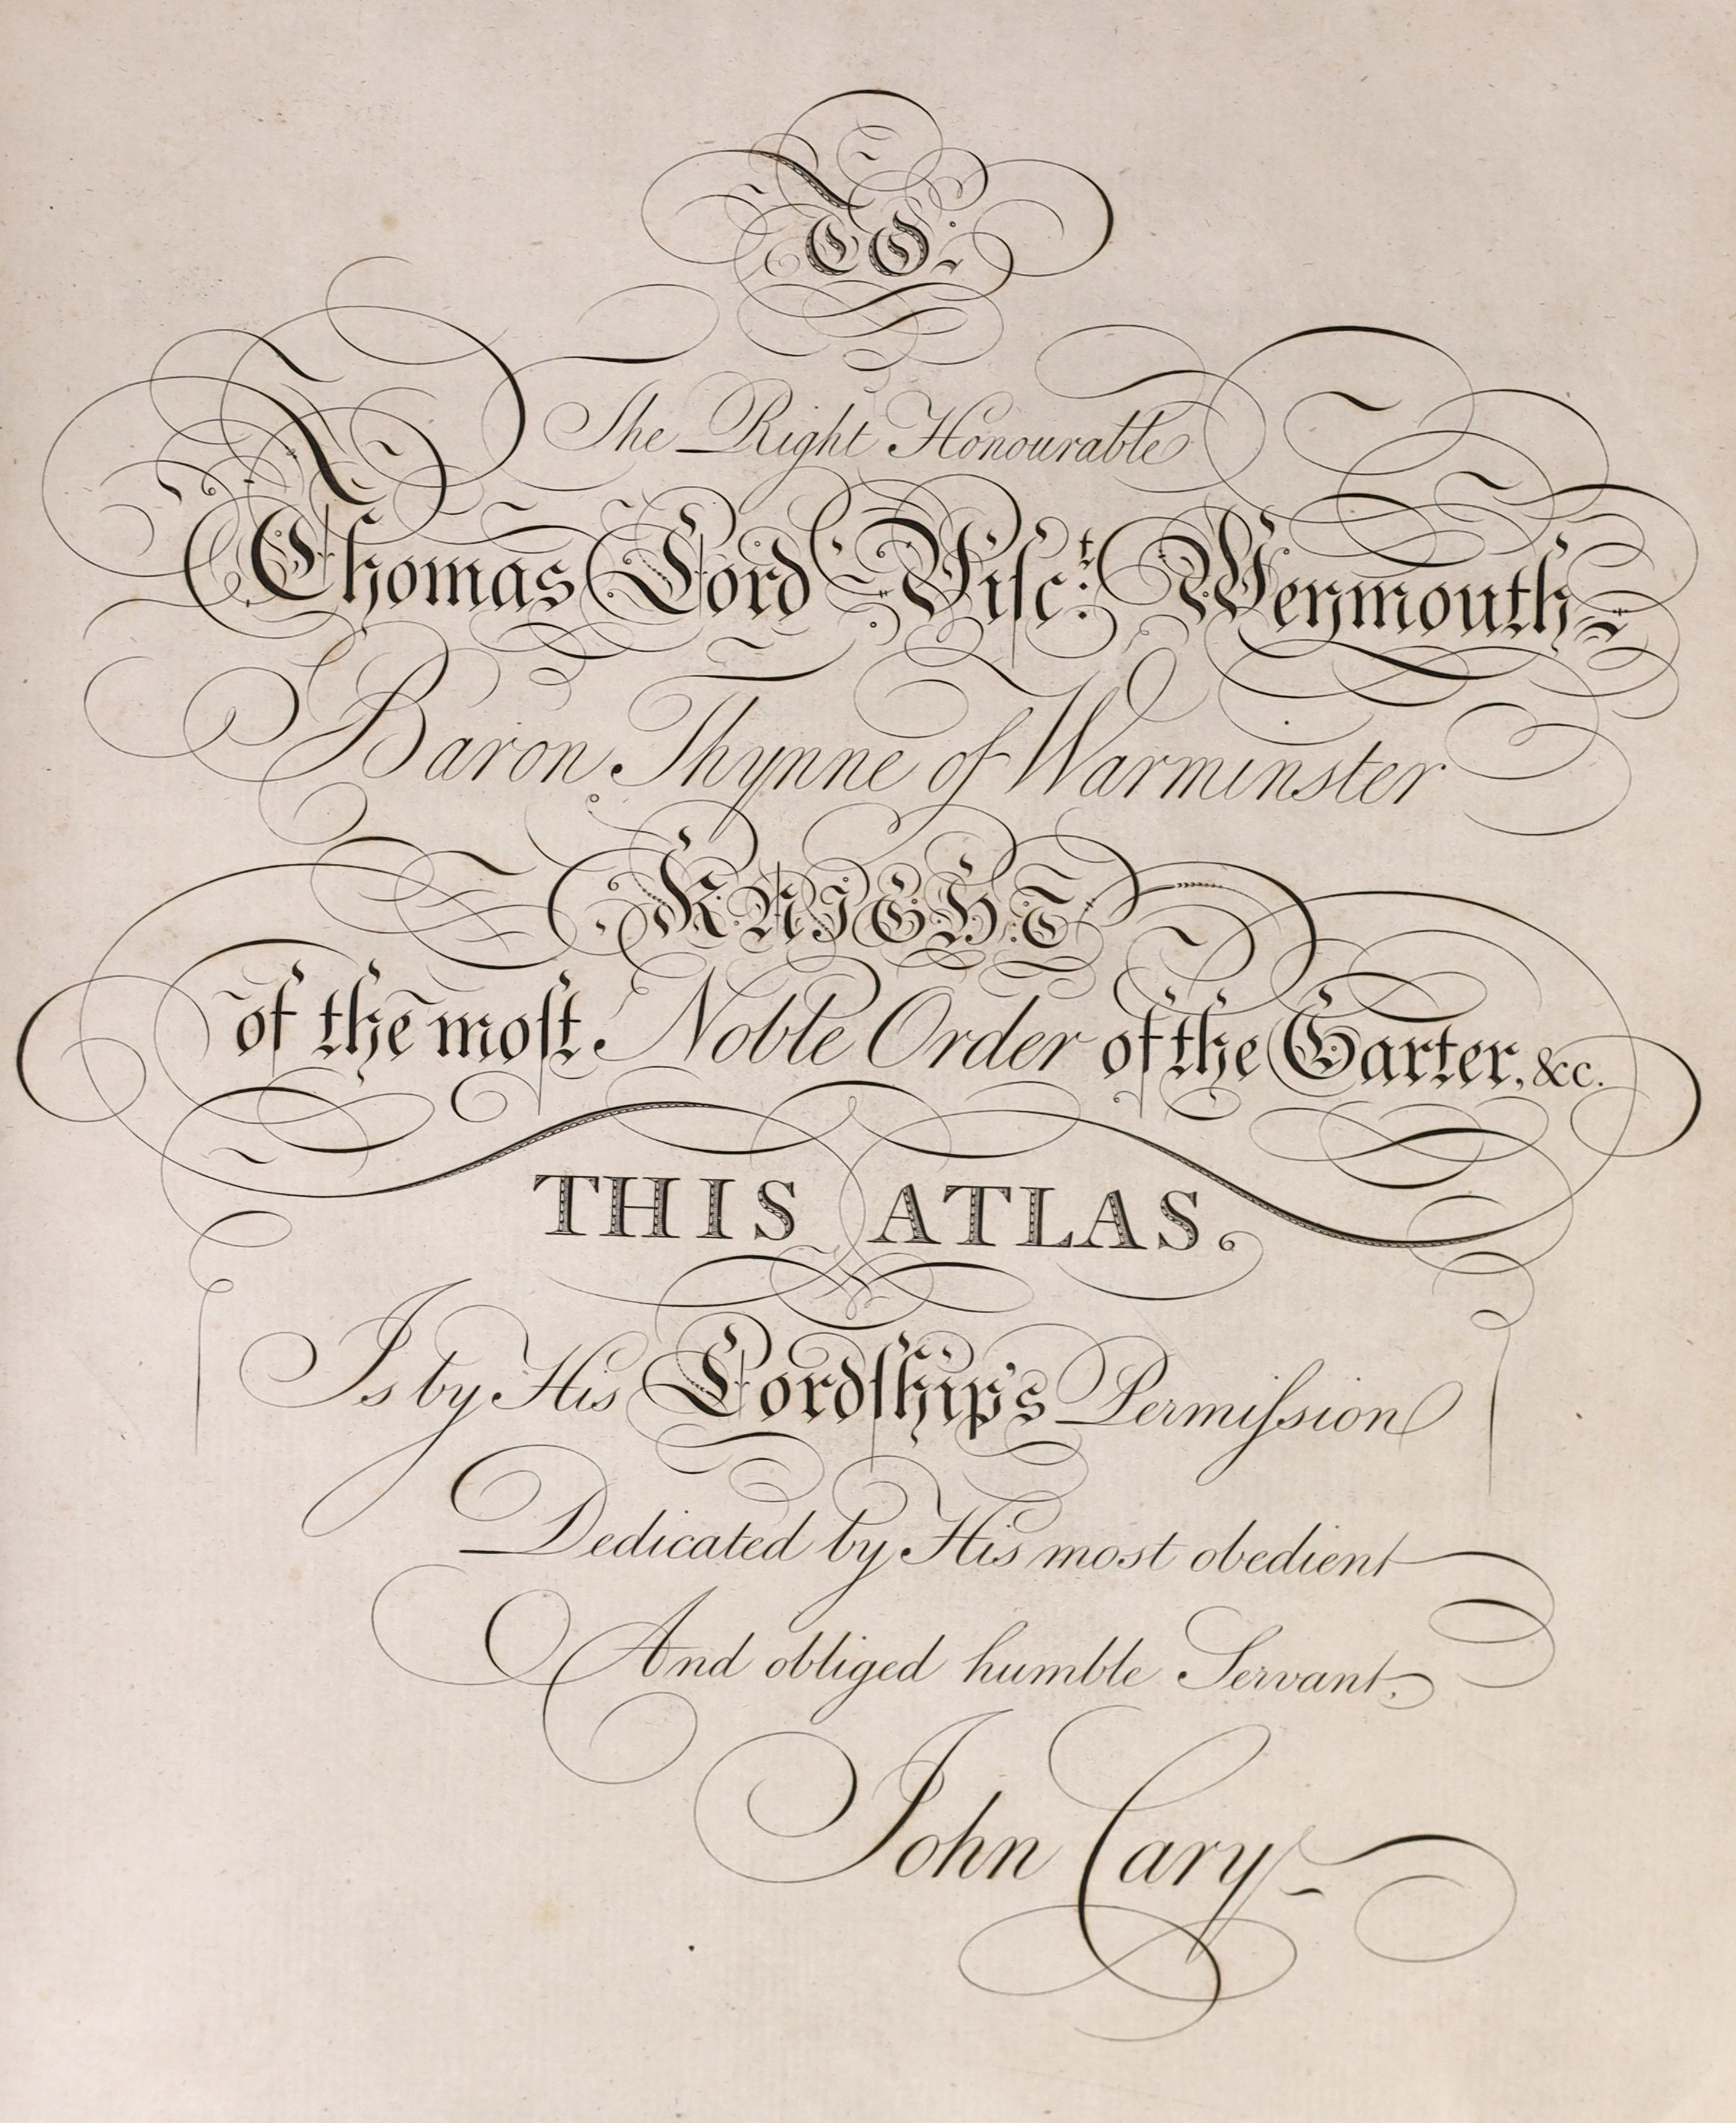 TO
The Right Honourable
Thomas Lord Viſc.ᵗ Weymouth
Baron Thynne of Warminster
KNIGHT
of the moſt Noble Order of the Garter, &c.
THIS ATLAS
Is by His Lordſhip's Permiſsion
Dedicated by His most obedient
And obliged humble Servant.
John Cary